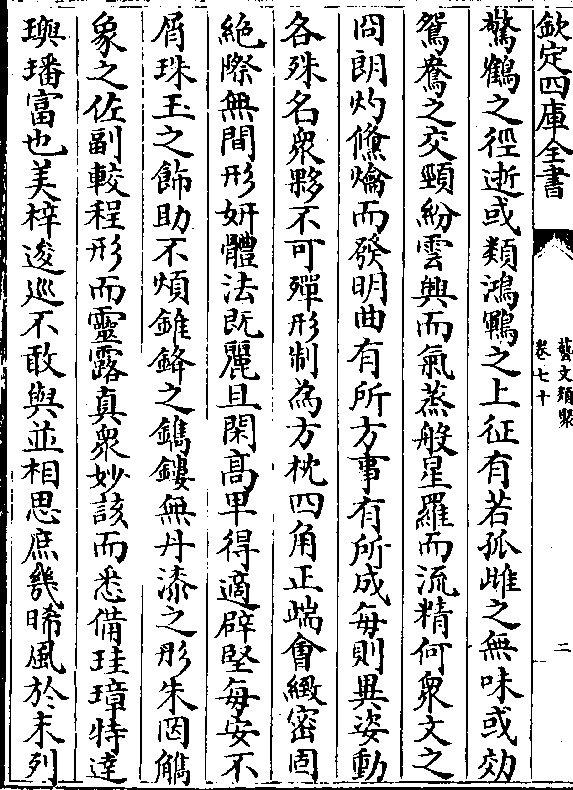 欽定四庫全書
藝文類聚
卷七十
二
驚鶴之徑逝或類鴻鵾之上征有若孤雌之無味或効
鴛鴦之交頸紛雲興而氣蒸般星羅而流精何衆文之
冏朗灼儵爚而發明曲有所方事有所成每則異姿動
各殊名衆夥不可殫形制為方枕四角正端會緻密固
絶際無間形妍體法既麗且閑髙卑得適辟堅毎安不
屑珠玉之飾助不煩錐鋒之鐫鏤無丹漆之彤朱罔觿
象之佐副較程形而靈露真衆妙該而悉備珪璋特達
璵璠富也美梓逡巡不敢與並相思庶幾晞風於末列